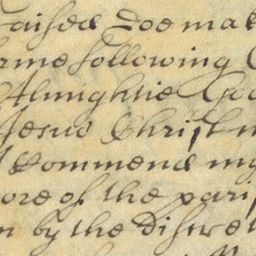 raised doe mak
orme following
Almightie God
Jesus Christ m
I Commend my
ore of the paris
n by the discret